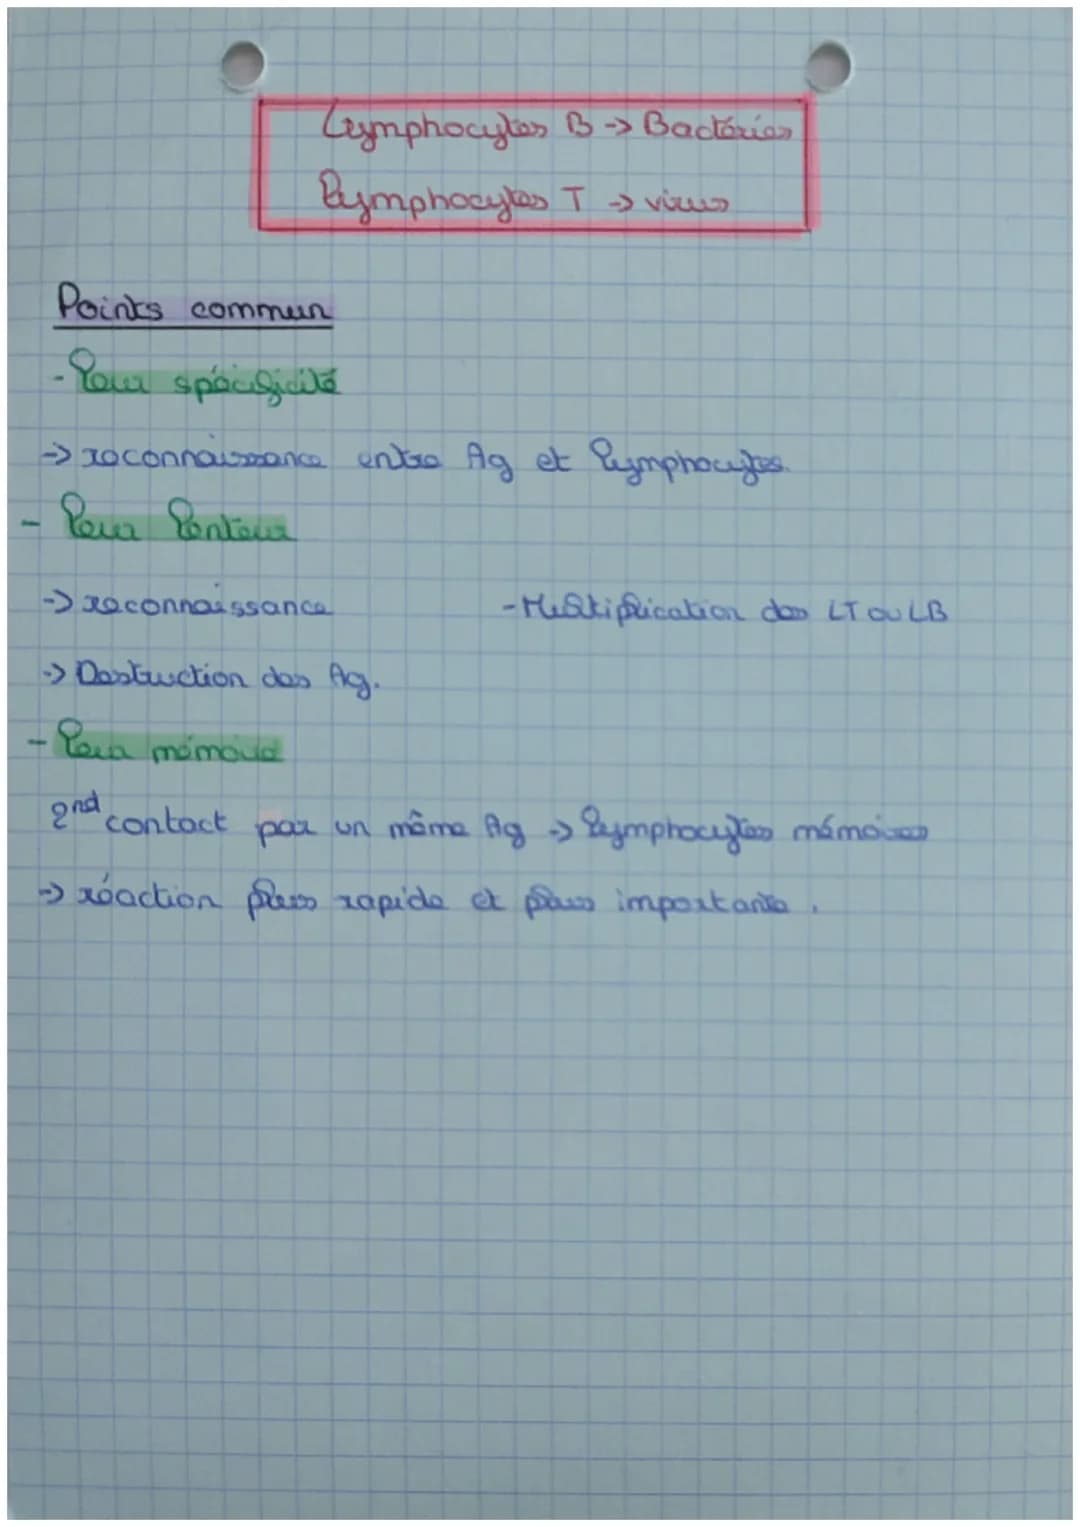 Lymphocytes B -> Bactéries
Lymphocytes T -> virus
Points commun
- Leur spécificité
-> reconnaissance entre Ag et lymphocytes.
- Leur lenteur
-> reconnaissance - Multiplication des LT ou LB
-> Destruction des Ag.
- Leur mémoire
2nd contact par un même Ag -> lymphocytes mémoires
-> réaction plus rapide et plus importante.